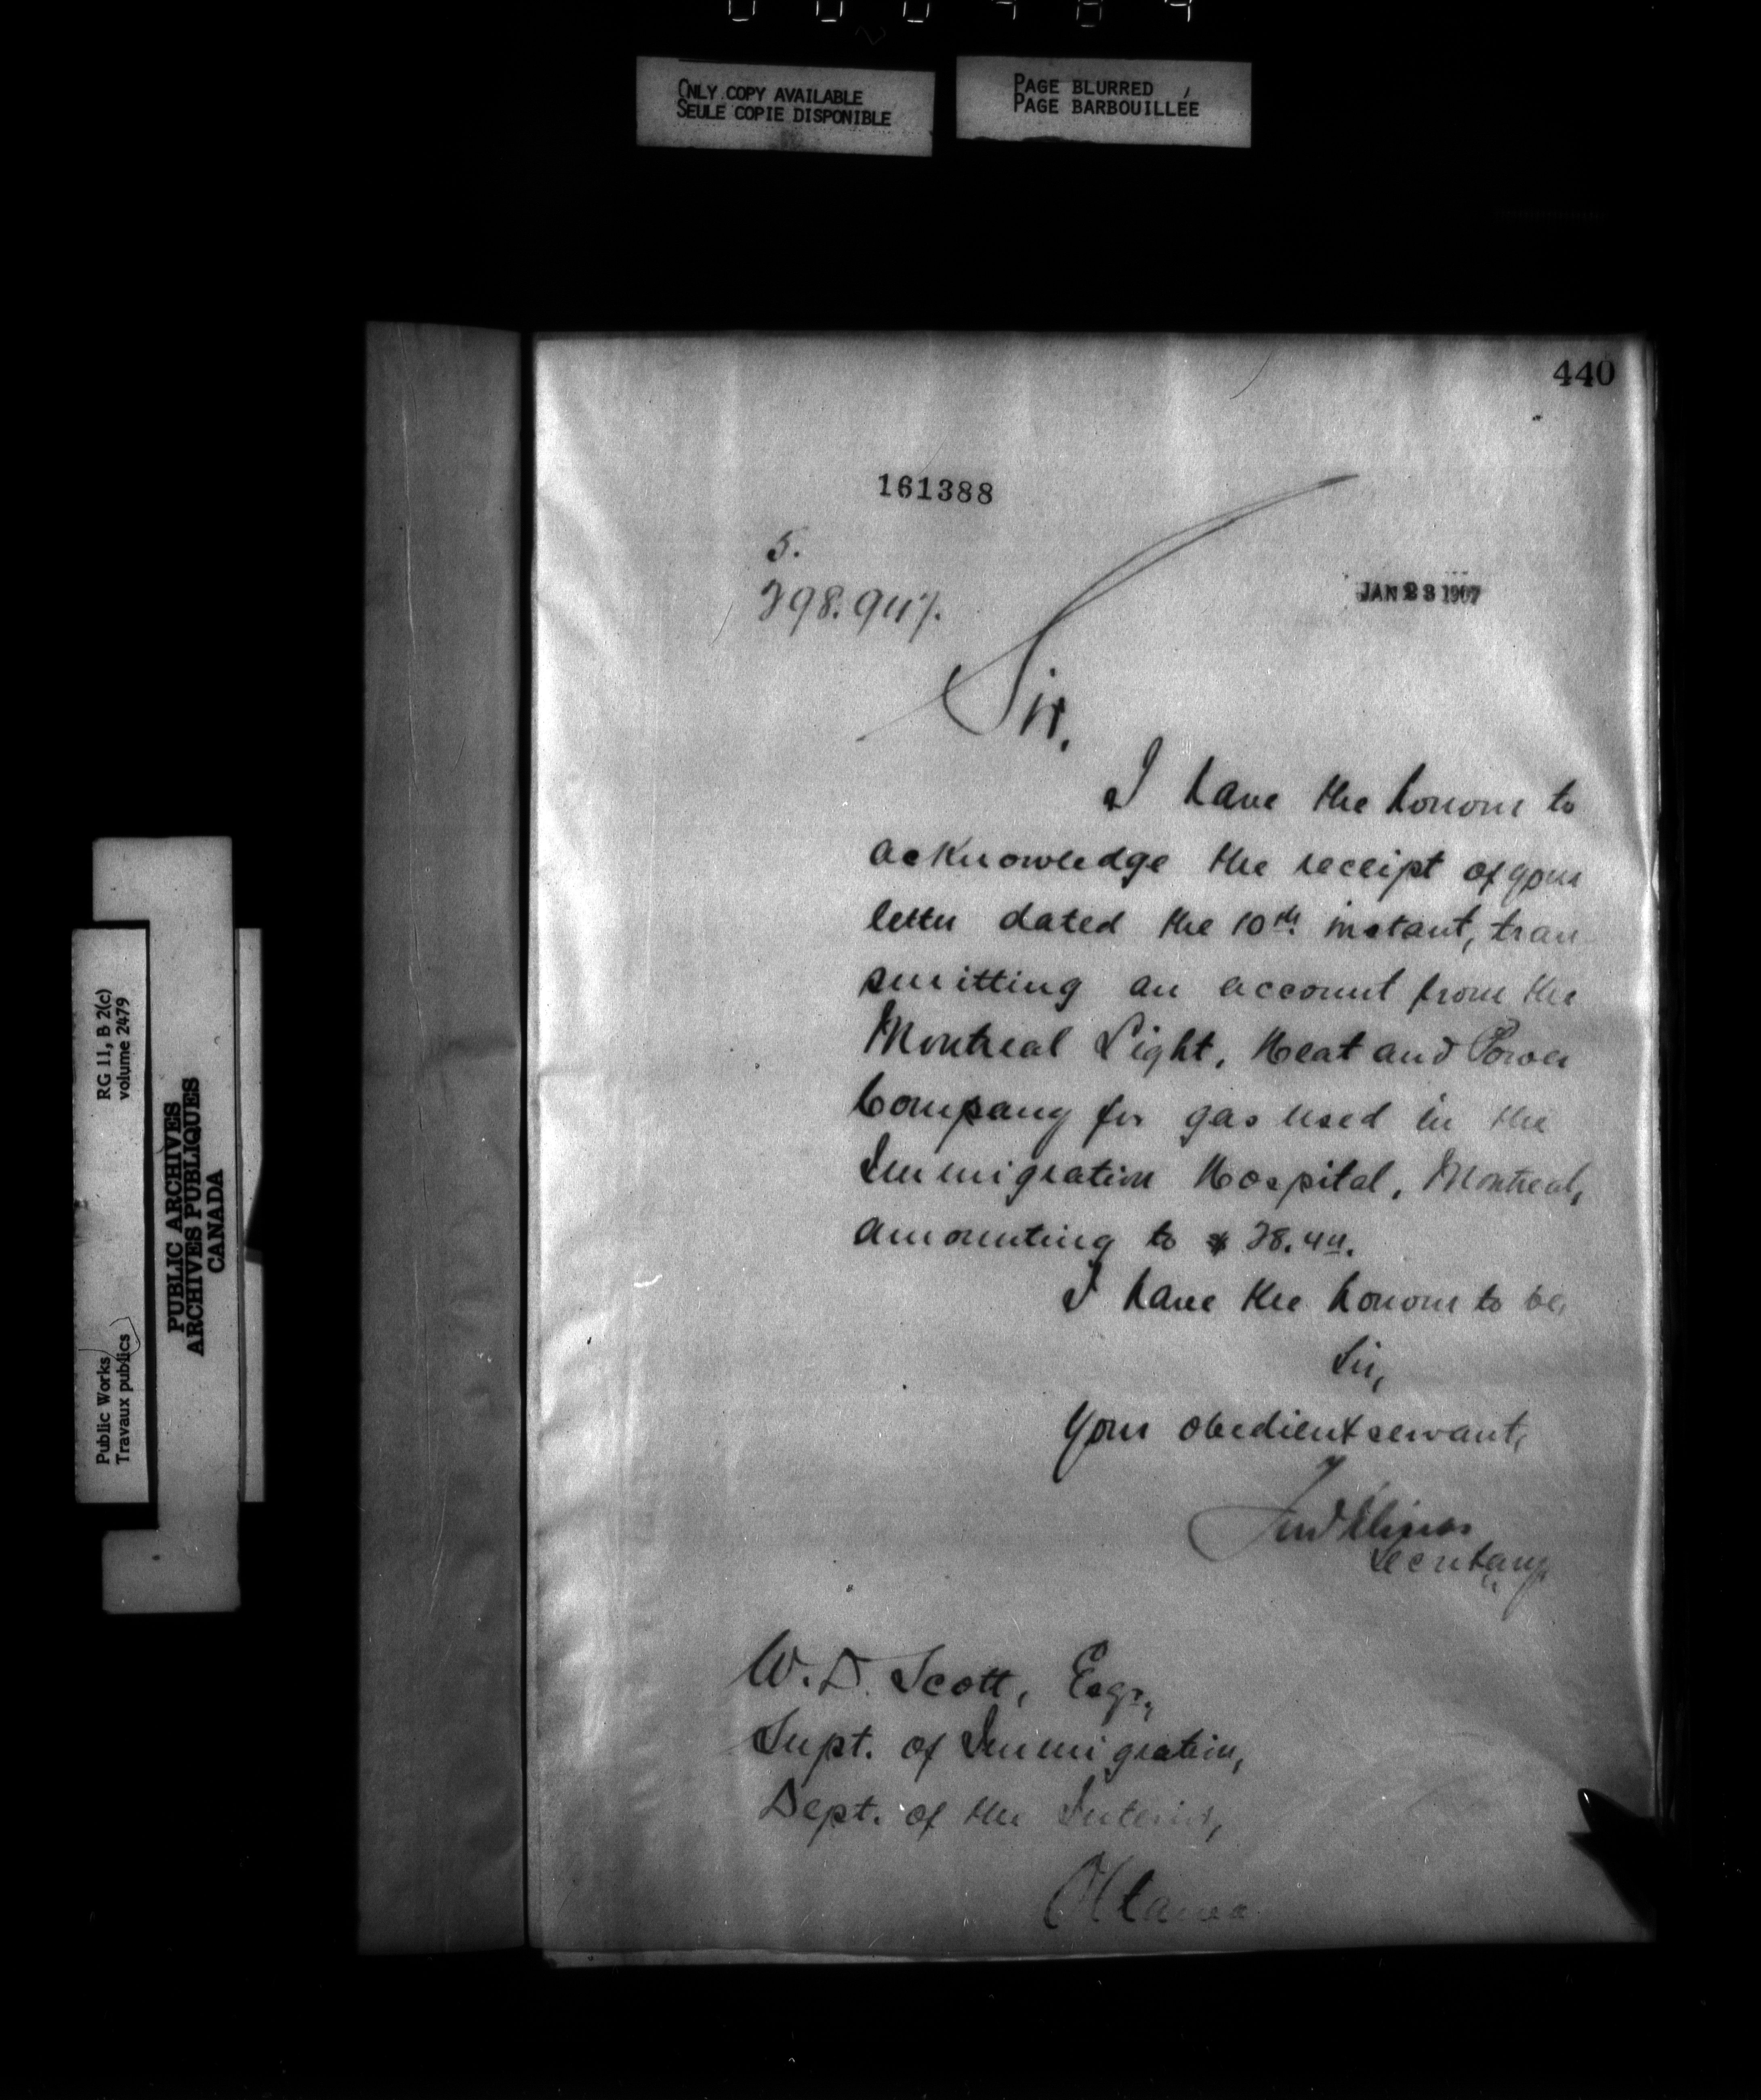 ONLY COPY AVAILABLE
SEULE COPIE DISPONIBLE
PAGE BLURRED
PAGE BARBOUILLÉE
440
161388
5.
298.947.
JAN 23 1907
Sir,
I have the honour to
acknowledge the receipt of your
letter dated the 10th. instant, tran
smitting an account from the
Montreal Light, Heat and Power
Company for gas used in the
Immigration Hospital, Montreal,
amounting to $ 28.44.
I have the honour to be,
Sir,
Your obedient servant,
Secretary.
W. D. Scott, Esqr.,
Supt. of Immigration,
Dept. of the Interior,
Ottawa
RG 11, B 2(c)
volume 2479
Public Works
Travaux publics
PUBLIC ARCHIVES
ARCHIVES PUBLIQUES
CANADA